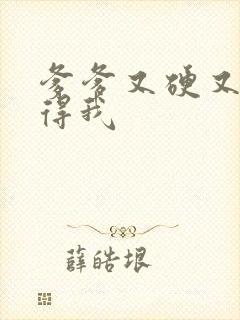 爹爹又硬又
得我
薛皓垠